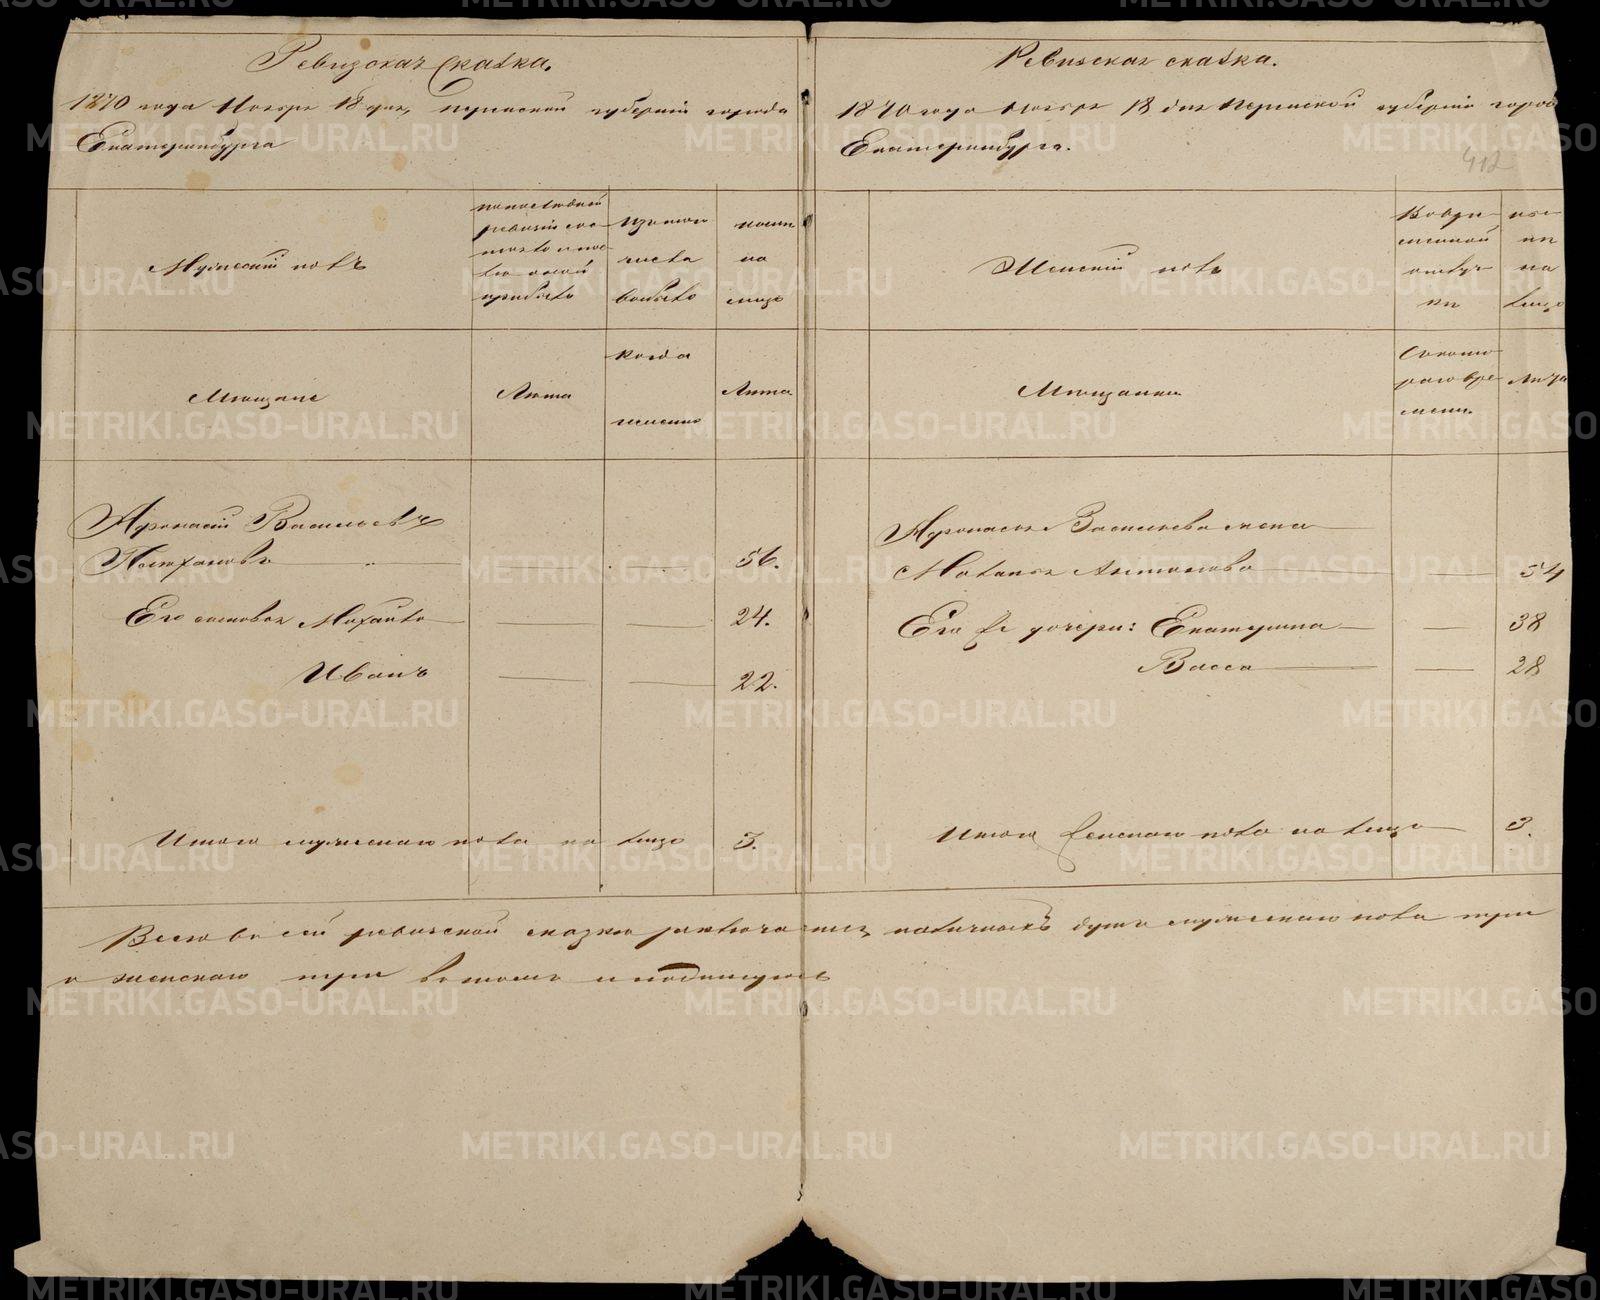 Ревизская Сказка.
1870 года Ноября 18 дня, пермской губернiи города
Екатеринбурга
Мужескiй полъ
по последней
ревизiи со-
стояло и пос-
ле оной
прибыло
Изъ того
числа
выбыло
ныне
на
лицо
Мещане
Лета
Когда
именно
Лета
Афонасiй Васильевъ
56.
Его сыновья Михайло
24.
Иванъ
22.
Итого мужескаго пола на лицо 3.
Ревизская сказка.
1870 года Ноября 18 дня Пермской губернiи города
Екатеринбурга.
412
Женскiй полъ
Во вре-
менной
отлуч-
ке
ны-
не
на
лицо
Мещанки
Съ кото-
раго вре-
мени
Лета
Афонасья Васильева жена
Маланья Антонова 54
Его же дочери: Екатерина 38
Васса 28
Итого женскаго пола на лицо 3.
Всего въ сей ревизской сказке заключается наличныхъ душъ мужескаго пола три
а женскаго три въ томъ и подпишуюсь
METRIKI.GASO-URAL.RU